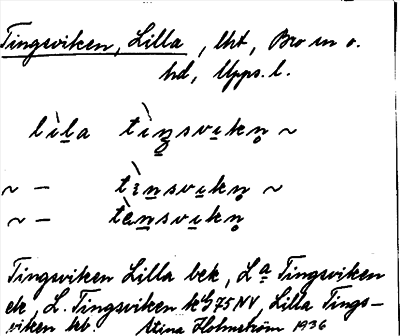 Tingsviken, Lilla, Uht, Bro sn o.
hd, Upps. l.
lìla tìŋsvikn̥ ~
~ – tìnsvikn̥ ~
~ – tènsvikn̥
Tingsviken Lilla bek, Lª Tingsviken
ek, L. Tingsviken kG75NV, Lilla Tings-
viken kb. Stina Holmström 1936